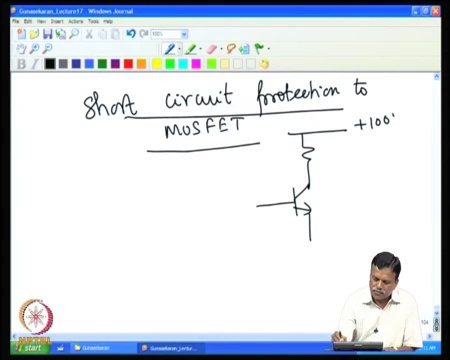 Gunasekaran_Lecture17 - Windows Journal
File Edit View Insert Actions Tools Help
100%
B I
Short circuit protection to
MOSFET
+100'
start
Gunasekaran
Gunasekaran_Lecture...
NPTEL